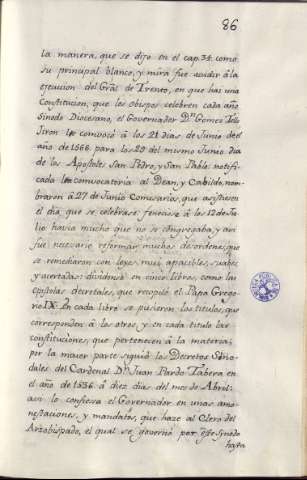 86
la manera, que se dijo en el cap. 34. como
su principal blanco, y mira fue acudir à la
ejecucion del Conl. de Trento, en que hai una
Constitucion, que los Obispos celebren cada año
Sinodo Diocesano, el Governador Dn. Gomez Tello
Jiron le convocó à los 21 dias de Junio del
año de 1566. para los 29 del mismo Junio dia
de los Apostoles San Pedro, y San Pablo: notifi-
cada la convocatoria al Dean, y Cabildo, nom-
braron à 27 de Junio Comisarios, que asistiesen
el dia, que se celebrase feneciose à los 12 de Ju-
lio havia mucho que no se congregaba, y asi
fue necesario reformar muchos desordenes, que
se remediaron con leyes mui apacibles, suabes,
y acertadas: dividense en cinco libros, como las
epistolas decretales, que recopiló el Papa Grego-
rio IX. En cada libro se pusieron los titulos, que
corresponden à los otros, y en cada titulo las
constituciones, que pertenecen à la materia;
por la maior parte siguió los Decretos Sino-
dales del Cardenal Dn. Juan Pardo Tabera en
el año de 1536. à diez dias del mes de Abril:
asi lo confiesa el Governador en unas amo-
nestaciones, y mandatos, que haze al Clero del
Arzobispado, el qual se governó por este Synodo
hasta